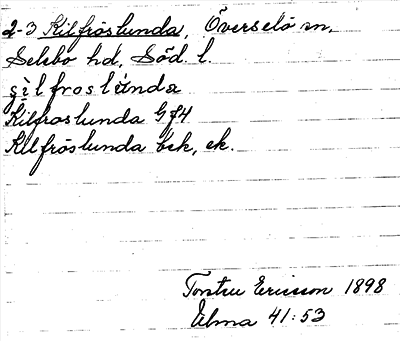 2-3 Kilfröslunda, Överselö sn,
Selebo hd, Söd. l.
Kilfröslunda Gf4
Kilfröslunda bek, ek.
Torsten Ericsson 1898
Elma 41:53